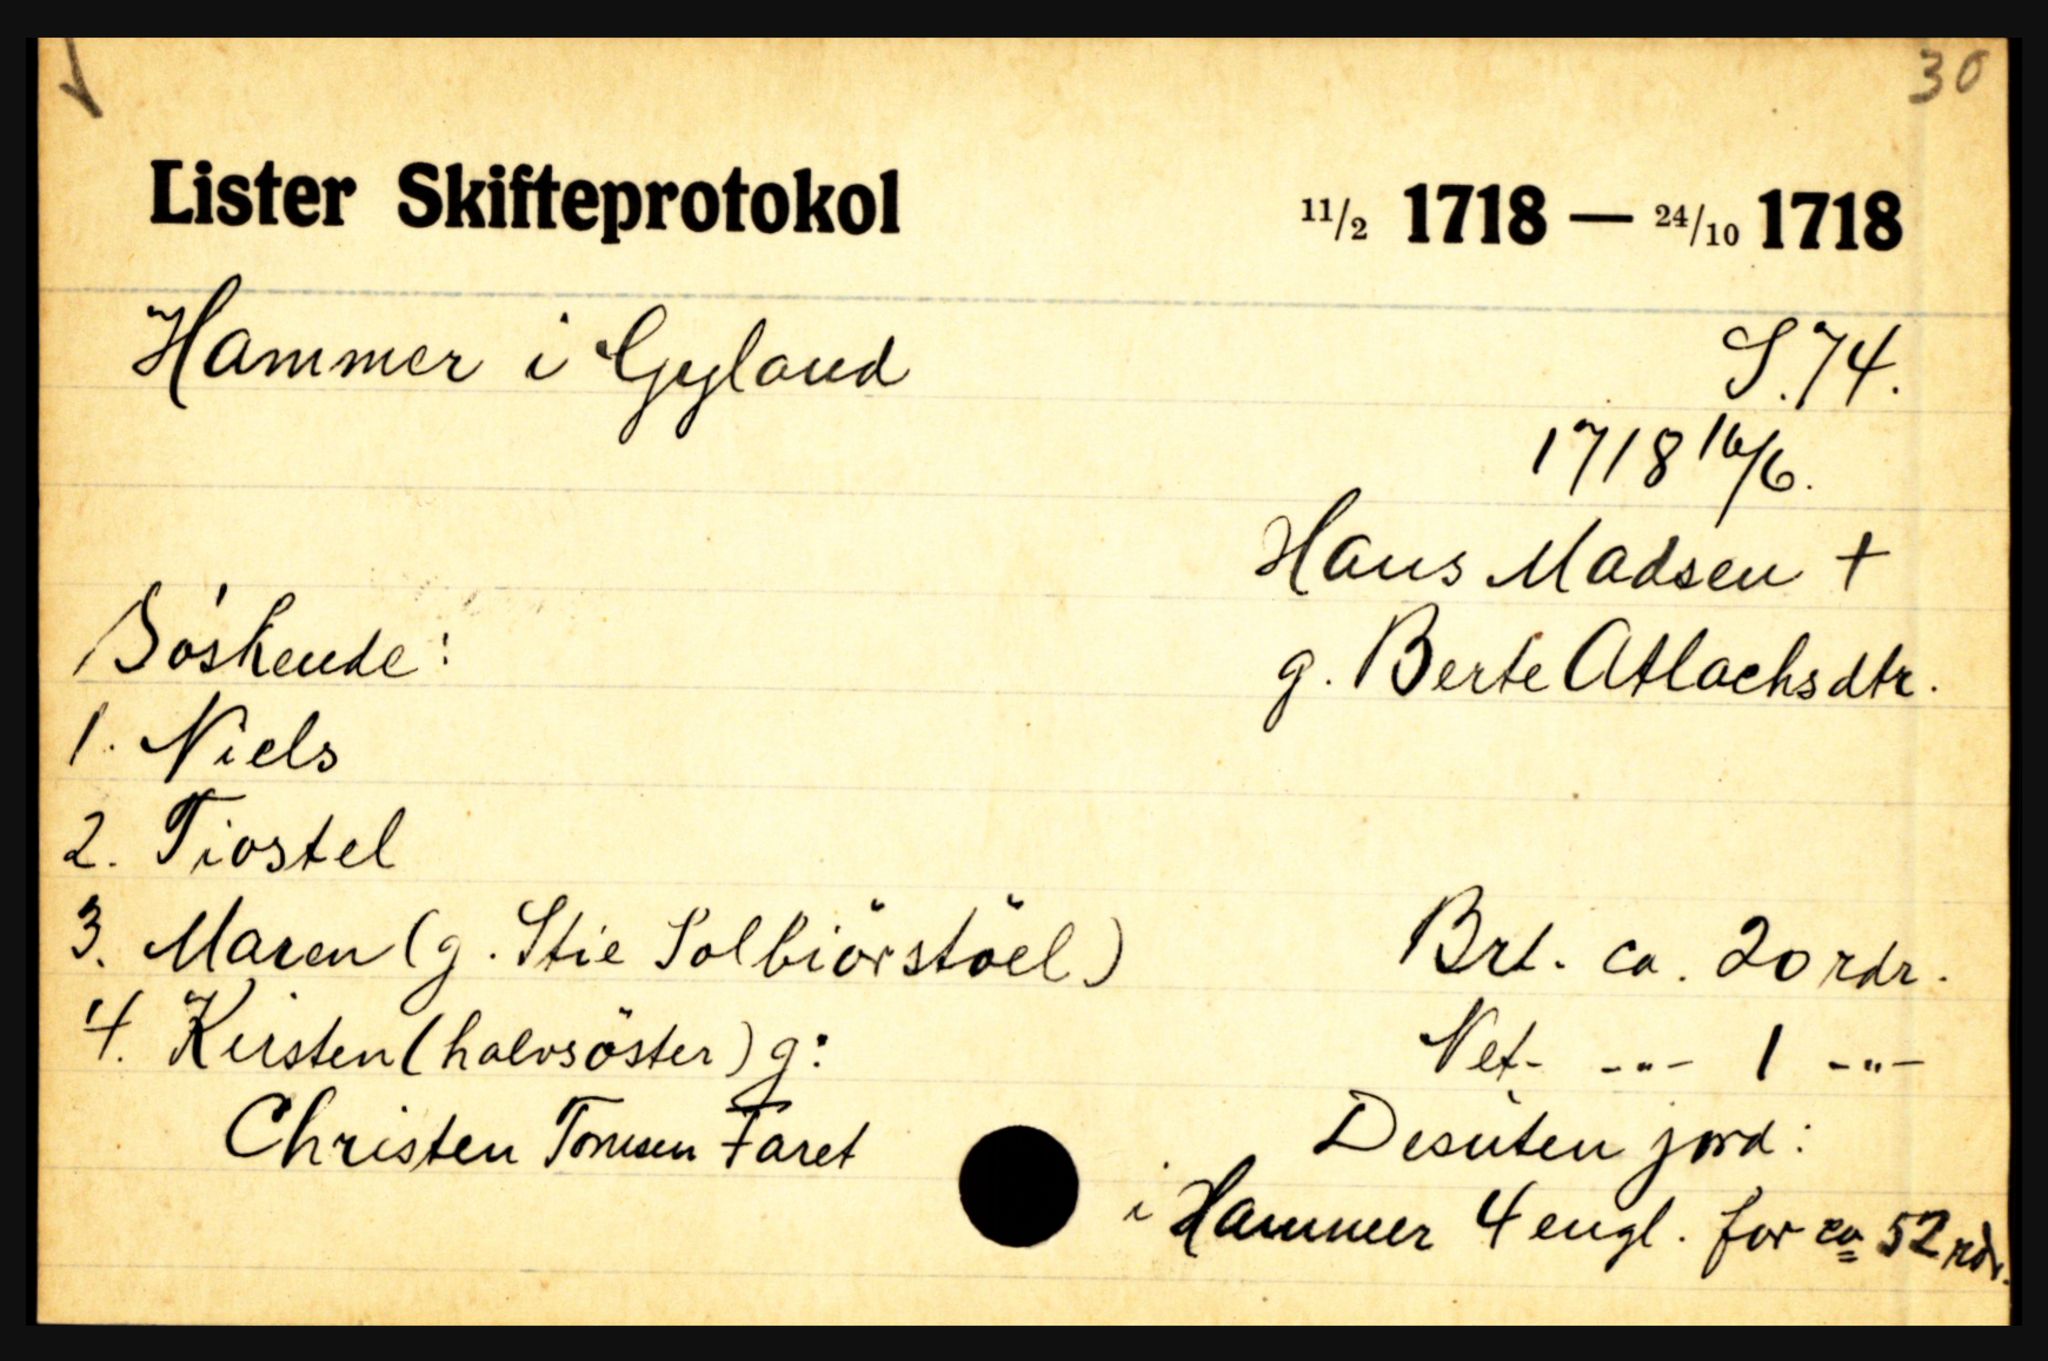 30
Lister Skifteprotokol 11/2 1718 — 24/10 1718
Hammer i Gyland S. 74.
1718 16/6.
Hans Madsen +
Söskende: g. Berte Atlachsdtr.
1. Niels
2. Tiostel
3. Maren (g. Stie Solbiörstöel) Brt. ca. 20 rdr.
4. Kirsten (halvsöster) g: Net- -"- 1 -"-
Christen Tomesen Faret Desuten jord:
i Hammer 4 engl. for ca 52 rdr.